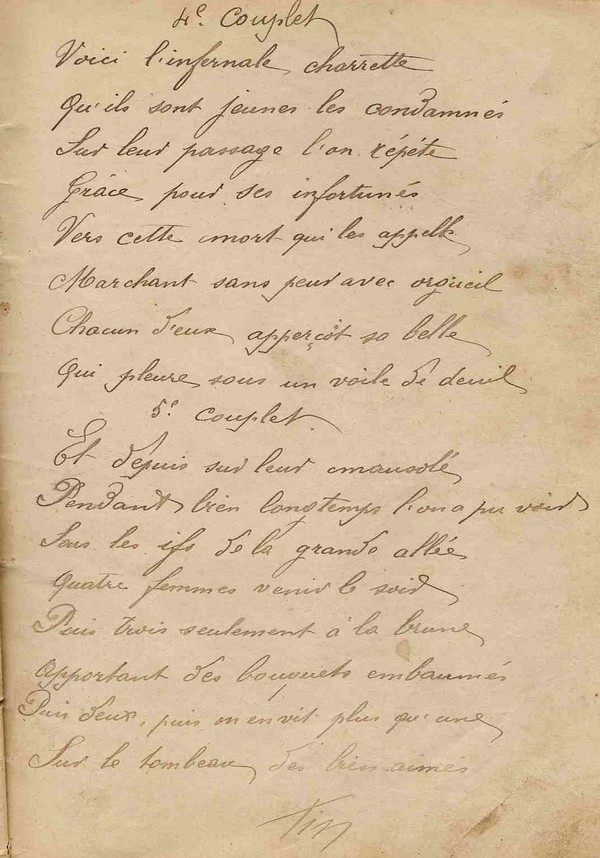 4e. Couplet
Voici l'infernale charrette
Qu'ils sont jeunes les condamnés
Sur leur passage l'on répéte
Grâce pour ses infortunés
Vers cette mort qui les appelle
Marchant sans peur avec orgueil
Chacun d'eux apperçôt sa belle
Qui pleure sous un voile de deuil
5e. couplet
Et depuis sur leur mausolé
Pendant bien longtemps l'on a pu voir
Sous les ifs de la grande allée
Quatre femmes venir le soir
Puis trois seulement à la brune
apportant des bouquets embaumés
Puis deux, puis on en vit plus qu'une
Sur le tombeau des bien aimés
Fin